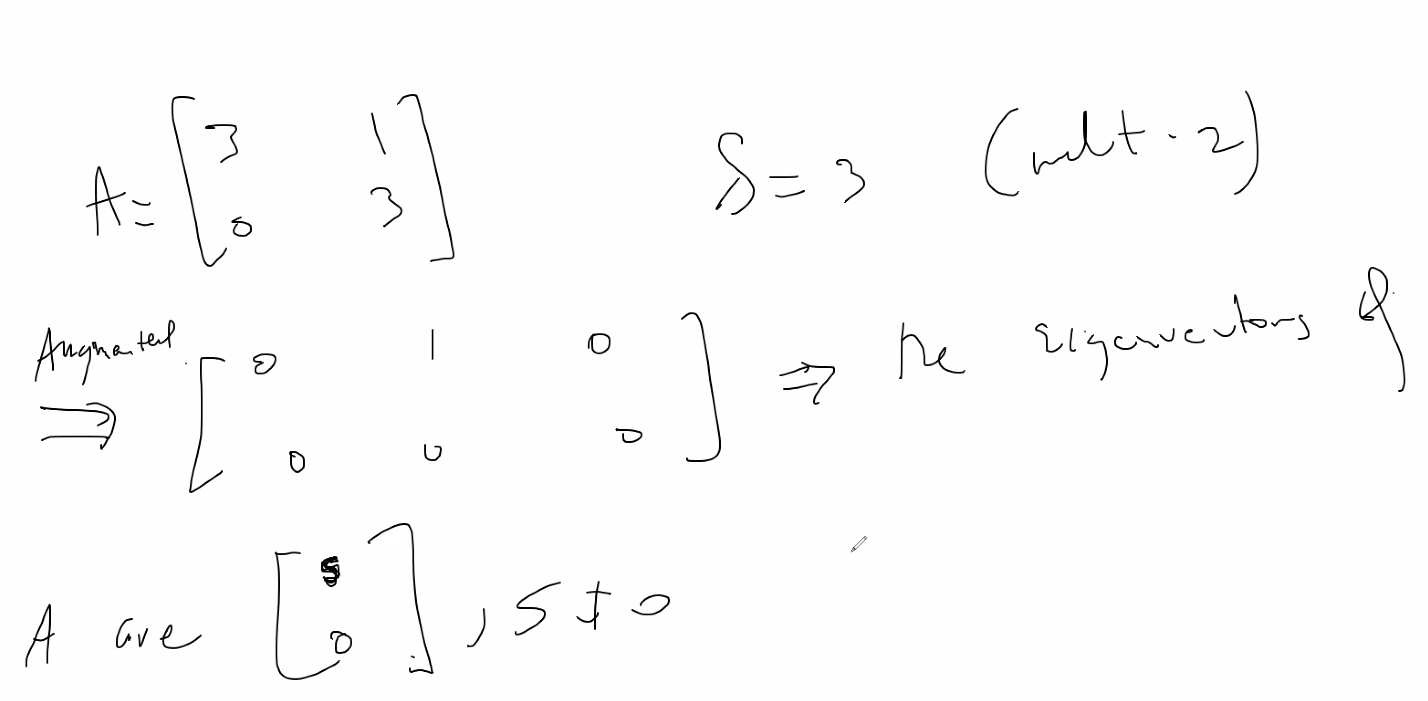 A = [3 1; 0 3] λ = 3 (mult. 2)
Augmented ⇒ [0 1 0; 0 0 0] ⇒ the eigenvectors of
A are [s; 0], s ≠ 0